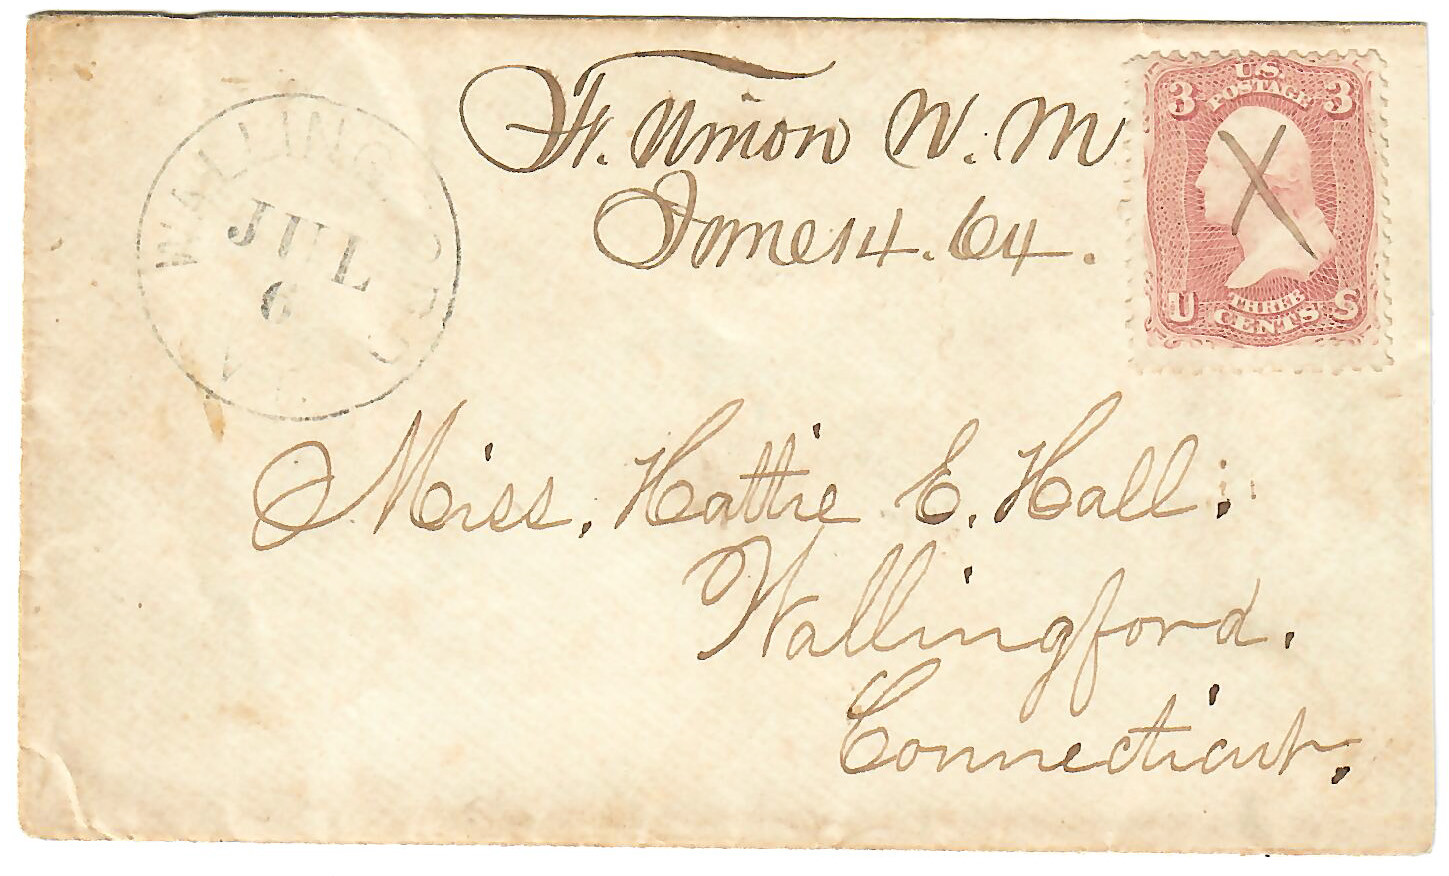 Ft. Union N. M
June 14. 64.
WALLINGFORD
JUL
6
Vt.
U.S.
POSTAGE
3 3
THREE
CENTS
U S
Miss. Hattie E. Hall.
Wallingford.
Connecticut.